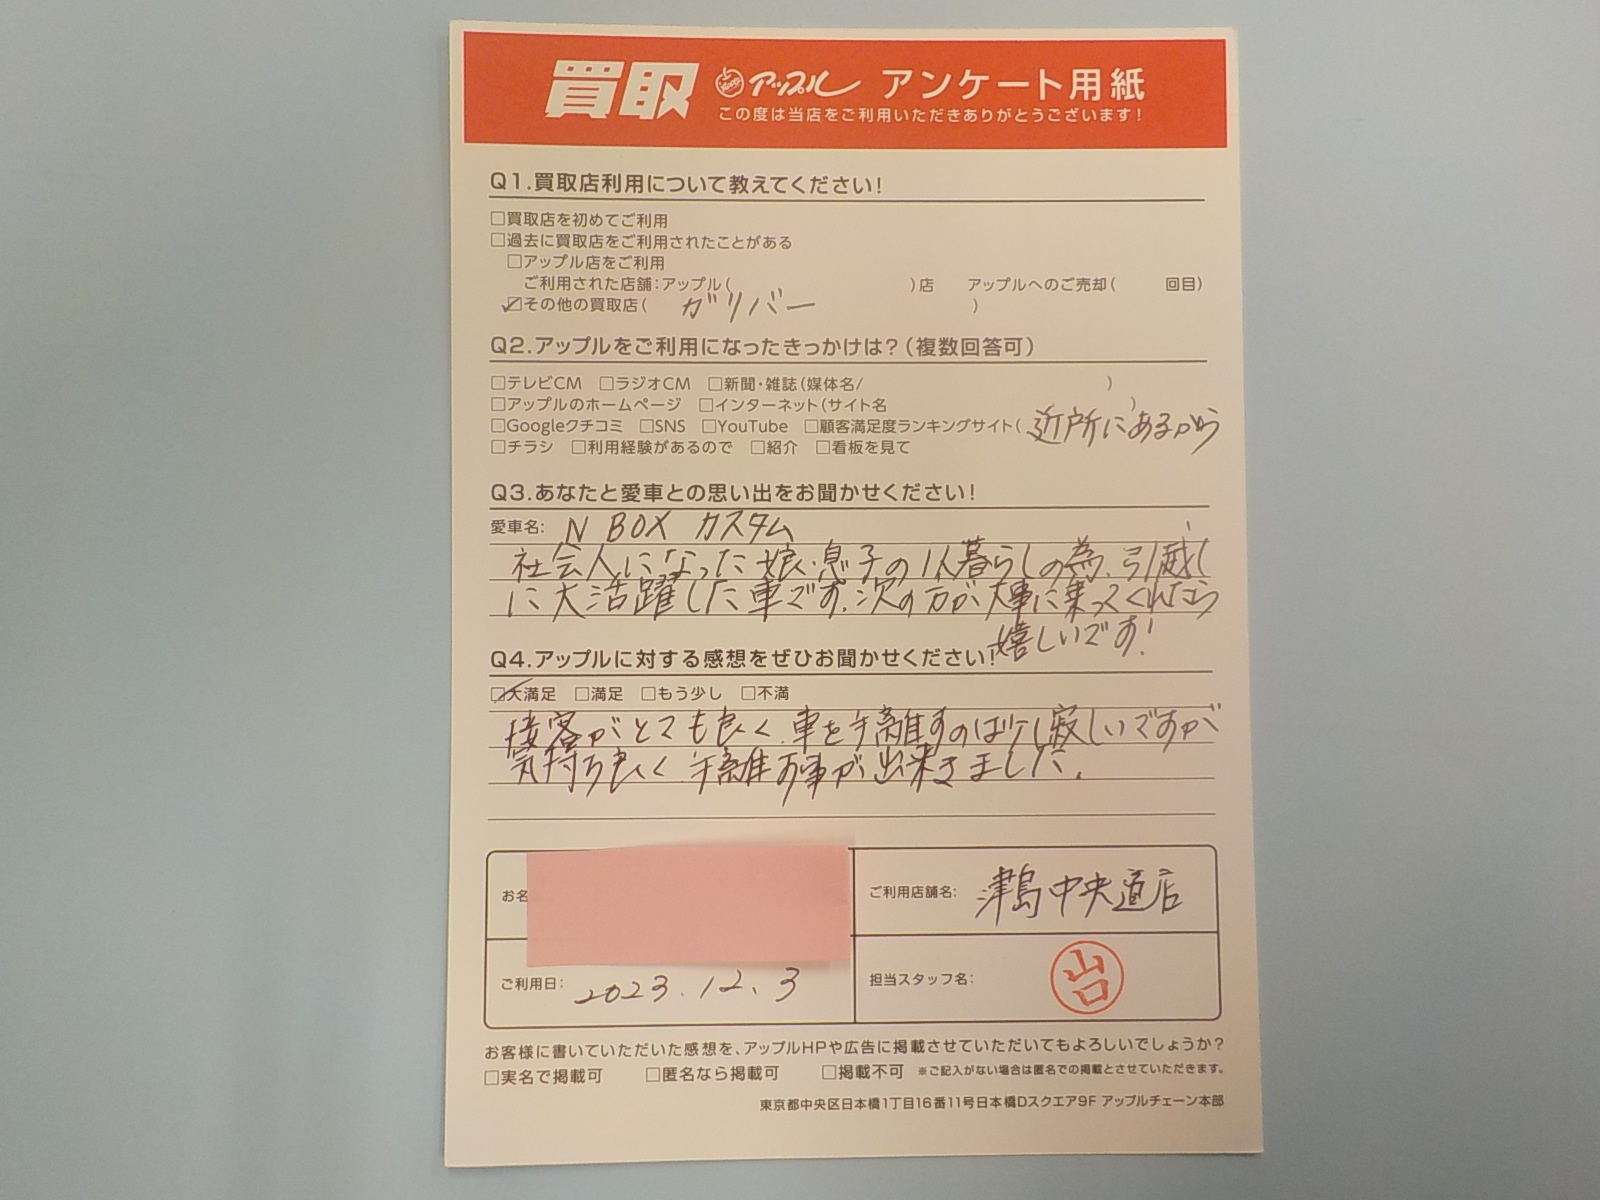 買取 アップル アンケート用紙
この度は当店をご利用いただきありがとうございます!
Q1.買取店利用について教えてください!
□買取店を初めてご利用
□過去に買取店をご利用されたことがある
□アップル店をご利用
ご利用された店舗:アップル( )店 アップルへのご売却( 回目)
☑その他の買取店( ガリバー )
Q2.アップルをご利用になったきっかけは?(複数回答可)
□テレビCM □ラジオCM □新聞・雑誌(媒体名/ )
□アップルのホームページ □インターネット(サイト名 )
□Googleクチコミ □SNS □YouTube □顧客満足度ランキングサイト( 近所にあるから
□チラシ □利用経験があるので □紹介 □看板を見て
Q3.あなたと愛車との思い出をお聞かせください!
愛車名: N BOX カスタム
社会人になった娘・息子の1人暮らしの為、引越し
に大活躍した車です。次の方が大事に乗ってくれたら
嬉しいです!
Q4.アップルに対する感想をぜひお聞かせください!
☑大満足 □満足 □もう少し □不満
接客がとても良く、車を手離すのは少し寂しいですが
気持ち良く手離す事が出来ました。
お名
ご利用店舗名: 津島中央道店
ご利用日: 2023.12.3
担当スタッフ名: 山口
お客様に書いていただいた感想を、アップルHPや広告に掲載させていただいてもよろしいでしょうか?
□実名で掲載可 □匿名なら掲載可 □掲載不可 ※ご記入がない場合は匿名での掲載とさせていただきます。
東京都中央区日本橋1丁目16番11号日本橋Dスクエア9F アップルチェーン本部